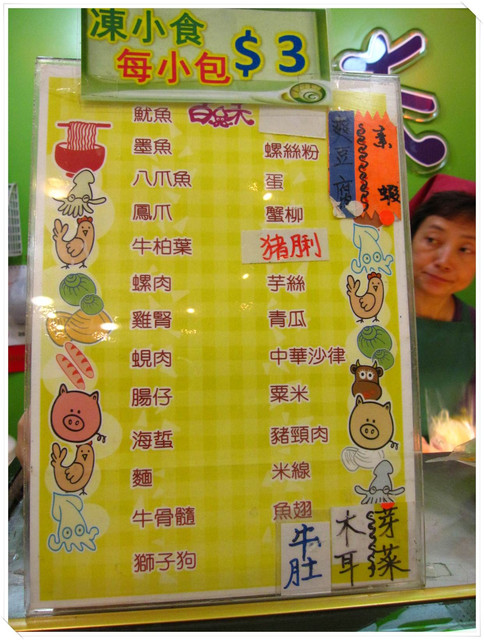 凍小食
每小包 $3
魷魚
墨魚
八爪魚
鳳爪
牛柏葉
螺肉
雞腎
蜆肉
腸仔
海蜇
麵
牛骨髓
獅子狗
螺絲粉
蛋
蟹柳
猪脷
芋絲
青瓜
中華沙律
粟米
豬頸肉
米線
魚翅
牛肚
木耳
芽菜
豆腐
素蝦